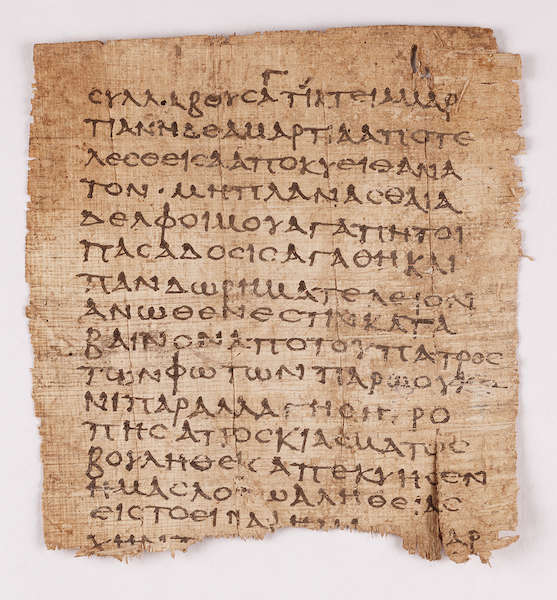 Γ
ϹΥΛΛΑΒΟΥϹΑΤΙΚΤΕΙΑΜΑΡ
ΤΙΑΝΗΔΕΑΜΑΡΤΙΑΑΠΟΤΕ
ΛΕϹΘΕΙϹΑΑΠΟΚΥΕΙΘΑΝΑ
ΤΟΝ·ΜΗΠΛΑΝΑϹΘΑΙΑ
ΔΕΛΦΟΙΜΟΥΑΓΑΠΗΤΟΙ
ΠΑϹΑΔΟϹΙϹΑΓΑΘΗΚΑΙ
ΠΑΝΔΩΡΗΜΑΤΕΛΕΙΟΝ
ΑΝΩΘΕΝΕϹΤΙΝΚΑΤΑ
ΒΑΙΝΟΝΑΠΟΤΟΥΠΑΤΡΟϹ
ΤΩΝΦΩΤΩΝΠΑΡΩΟΥΚΕ
ΝΙΠΑΡΑΛΛΑΓΗϹΗΡΟ
ΠΗϹΑΠΟϹΚΙΑϹΜΑΤΟϹ
ΒΟΥΛΗΘΕΙϹΑΠΕΚΥΗϹΕΝ
ΗΜΑϹΛΟΓΩΑΛΗΘΕΙΑϹ
ΕΙϹΤΟΕΙΝΑΙΗΜ